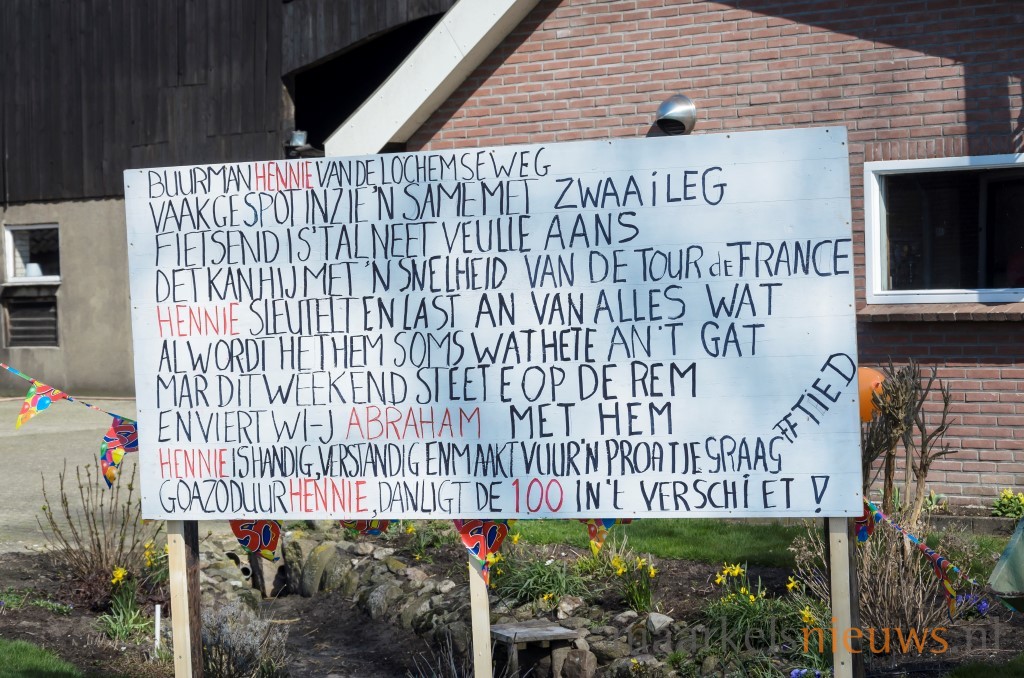 BUURMAN HENNIE VAN DE LOCHEMSEWEG
VAAK GESPOT IN ZIE'N SAME MET ZWAAILEG
FIETSEND IS 'T AL NEET VEULLE AANS
DET KAN HIJ MET 'N SNELHEID VAN DE TOUR de FRANCE
HENNIE SLEUTELT EN LAST AN VAN ALLES WAT
AL WORDT HET HEM SOMS WAT HETE AN 'T GAT
MAR DIT WEEKEND STEET E OP DE REM
EN VIERT WI-J ABRAHAM MET HEM
#TIED
HENNIE IS HANDIG, VERSTANDIG EN MAAKT VUUR 'N PROATJE GRAAG
GOAZO DUUR HENNIE, DAN LIGT DE 100 IN 'T VERSCHIET !
50
50
50
maarkelsnieuws.nl